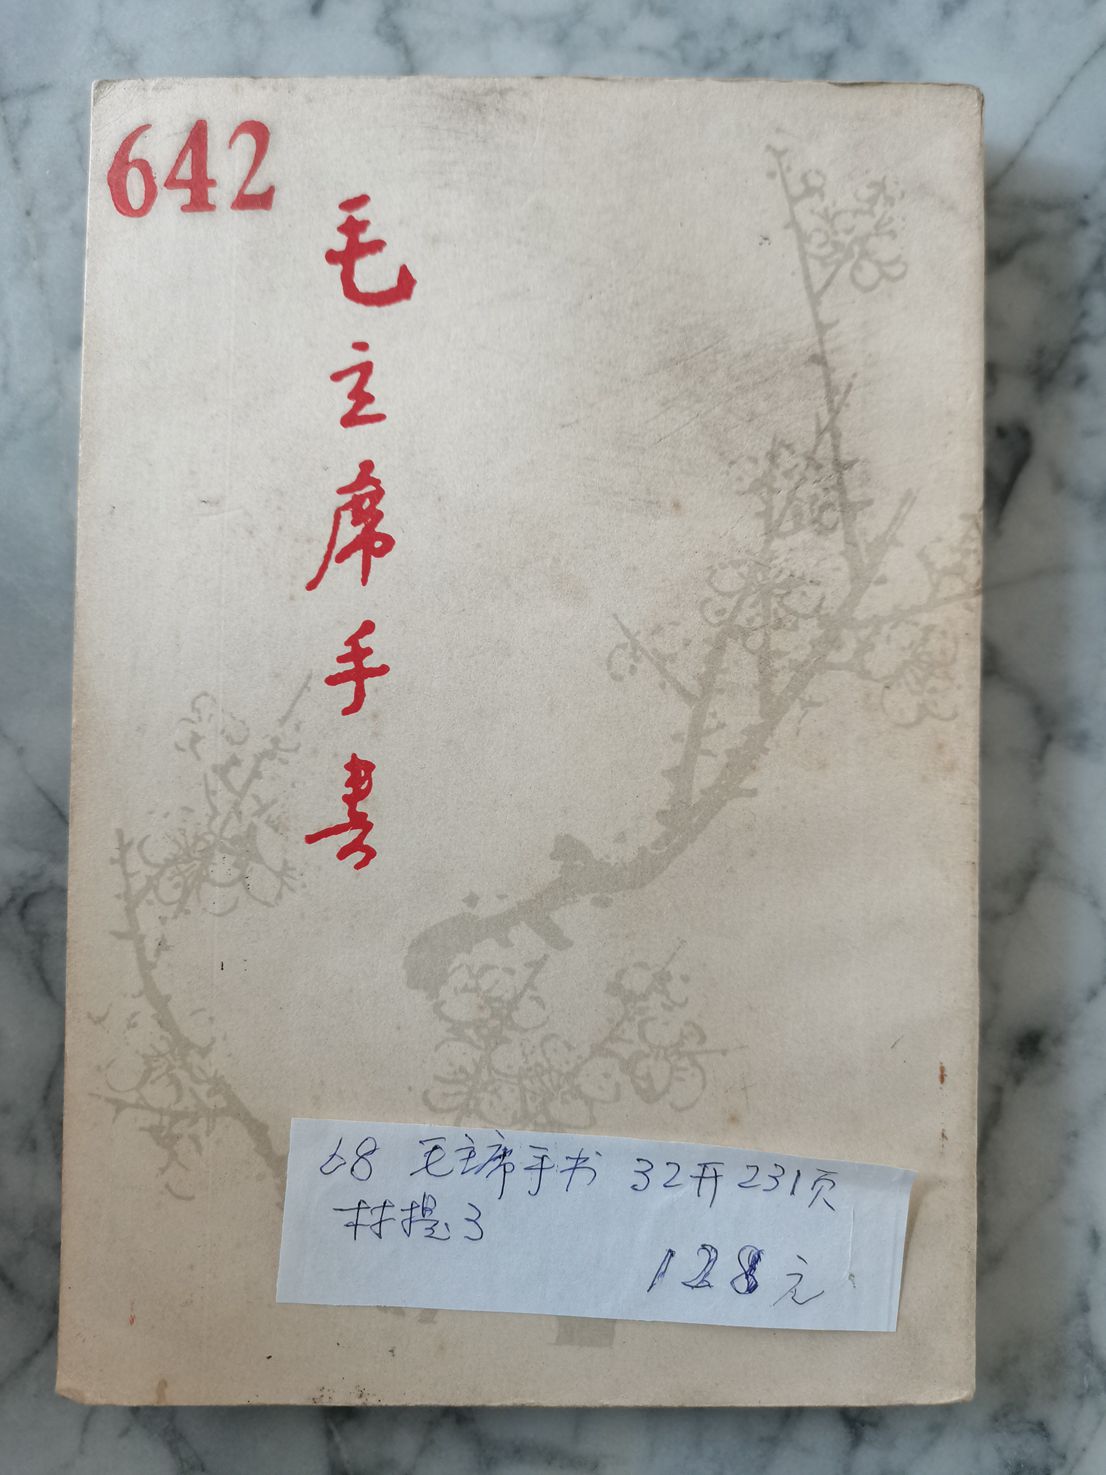 642
毛主席手書
68 毛主席手书 32开231页
林提3
128元